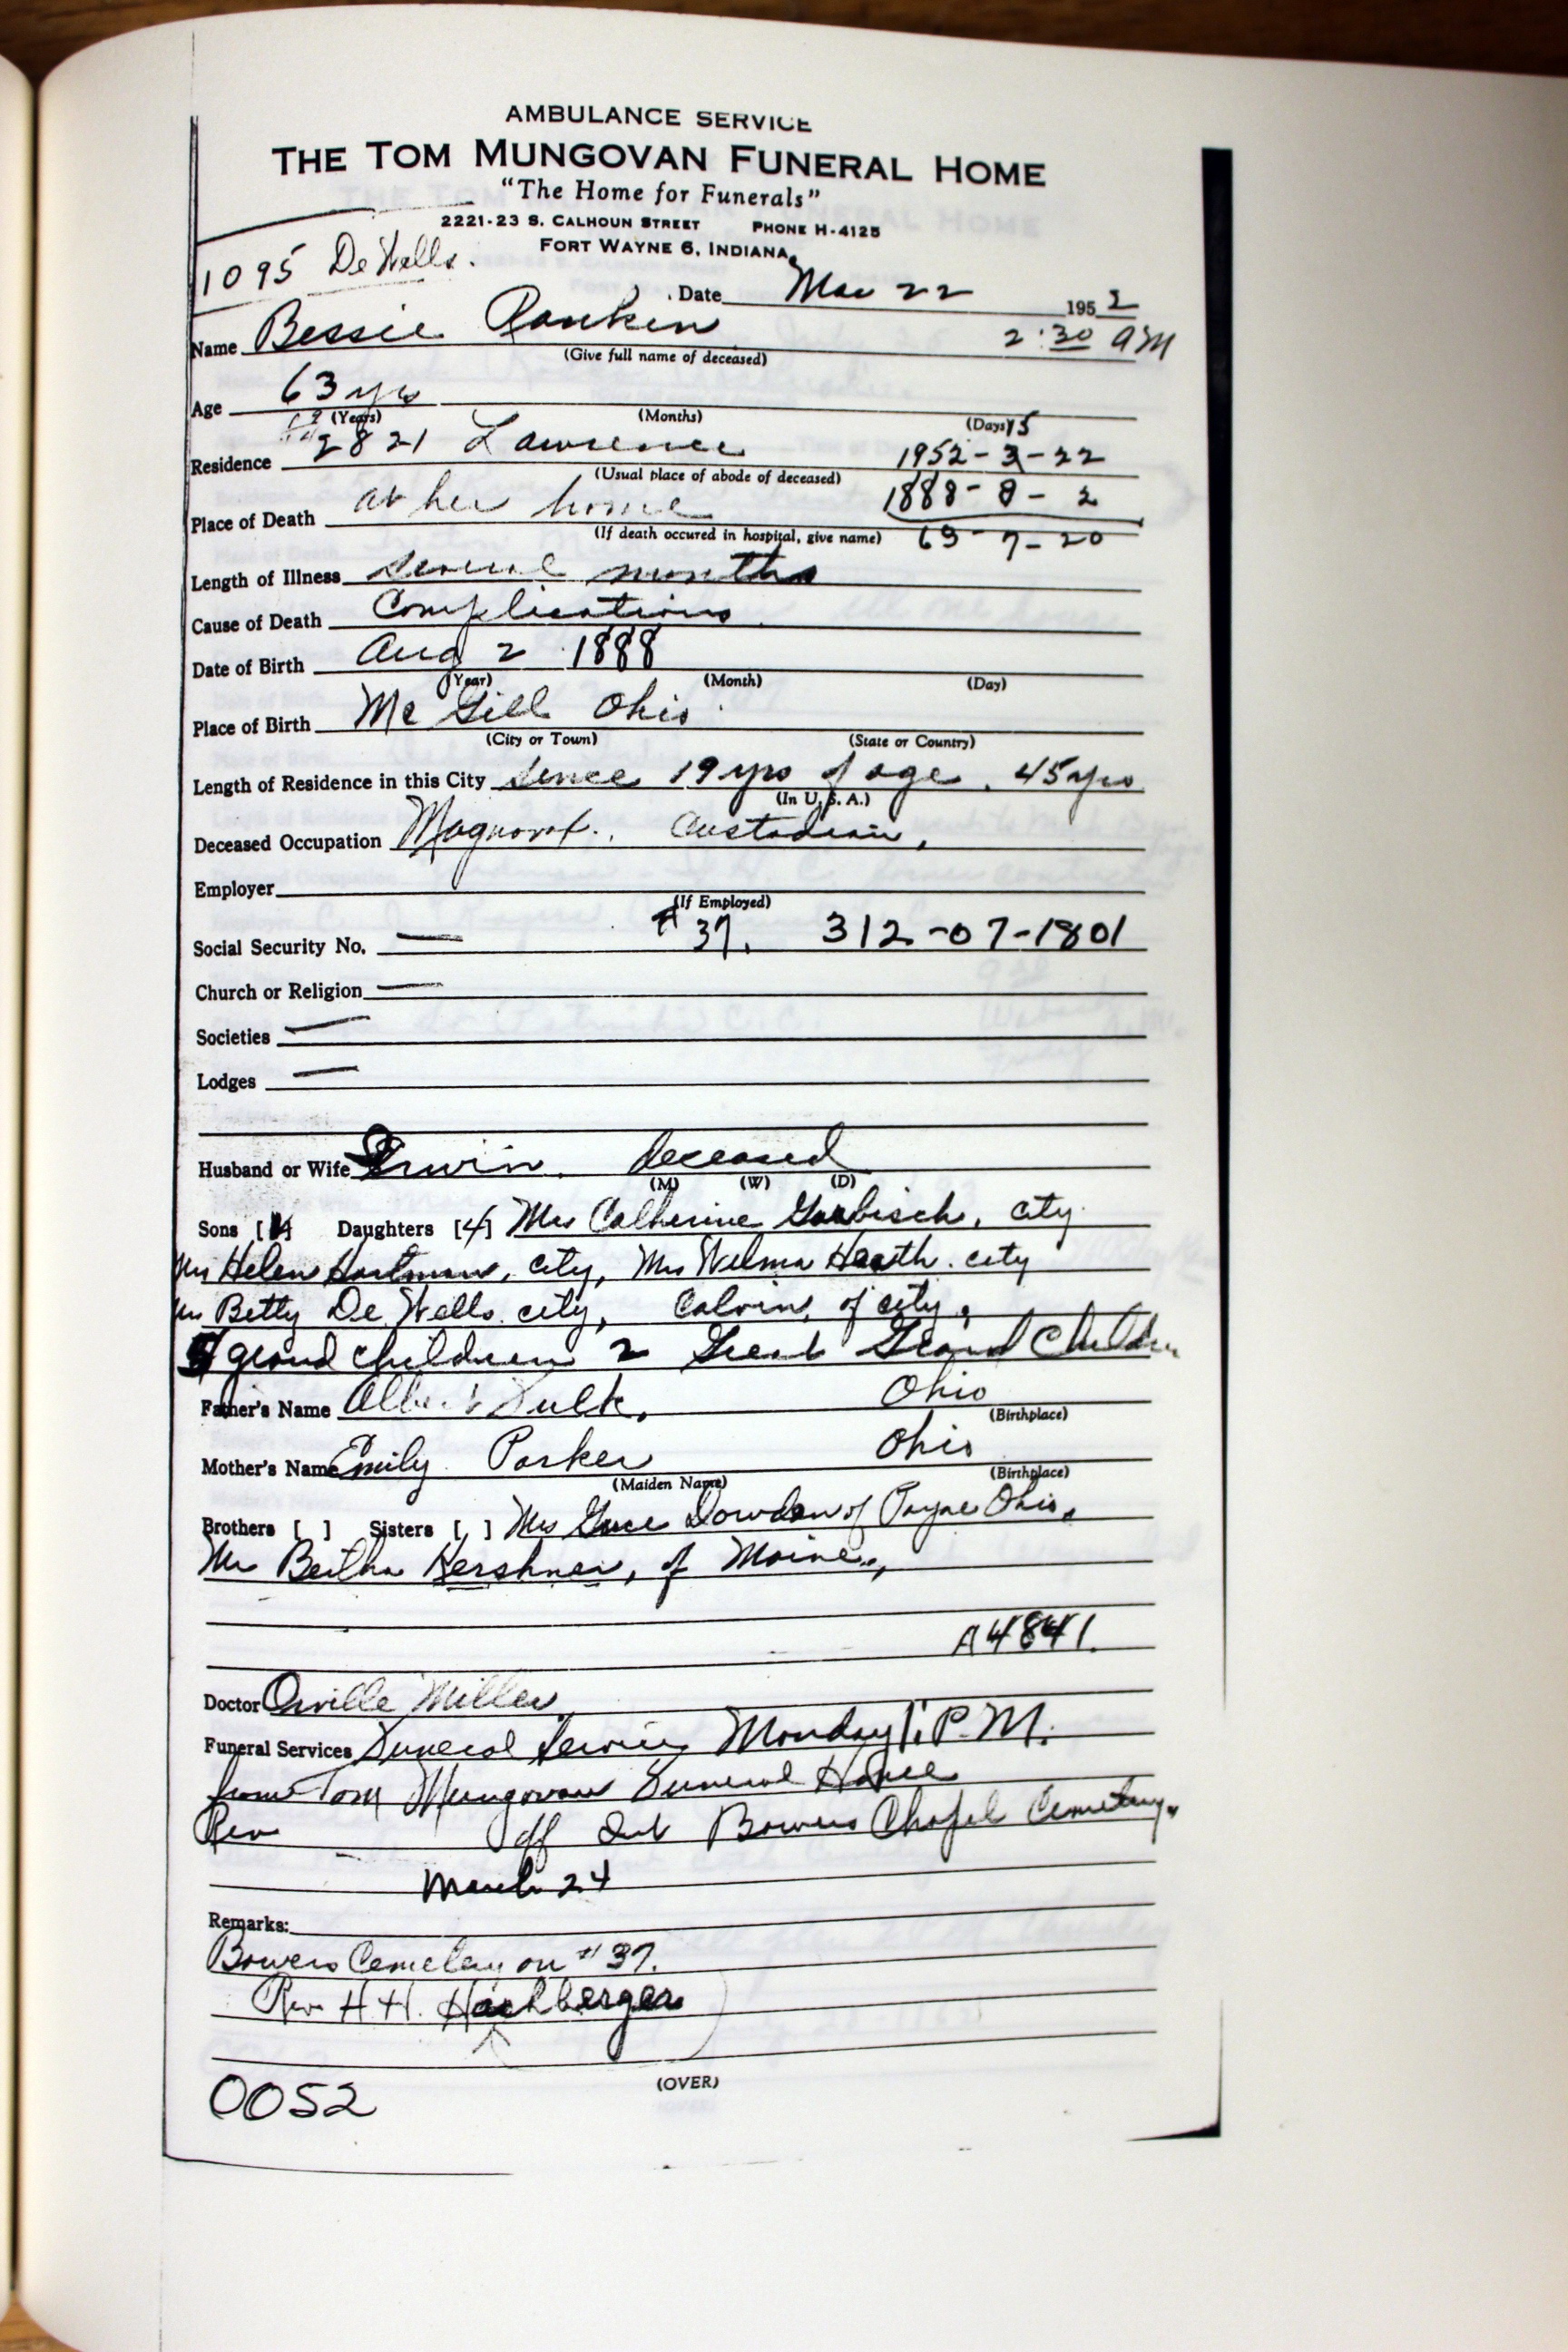 AMBULANCE SERVICE
THE TOM MUNGOVAN FUNERAL HOME
"The Home for Funerals"
2221-23 S. CALHOUN STREET PHONE H-4125
FORT WAYNE 6, INDIANA
1095 De Wells.
Date Mar 22 1952
Name Bessie Rankin 2:30 AM
(Give full name of deceased)
Age 63 yrs
(Years) (Months) (Days)
Residence 2821 Lawrence 1952-3-22
(Usual place of abode of deceased)
Place of Death at her home 1888-8-2
(If death occured in hospital, give name) 63-7-20
Length of Illness several months
Cause of Death Complications
Date of Birth Aug 2 1888
(Year) (Month) (Day)
Place of Birth Mc Gill Ohio
(City or Town) (State or Country)
Length of Residence in this City since 19 yrs of age. 45 yrs
(In U.S.A.)
Deceased Occupation Custodian,
Employer
(If Employed)
Social Security No. — #37. 312-07-1801
Church or Religion —
Societies —
Lodges —
Husband or Wife Erwin. deceased
(M) (W) (D)
Sons [ ] Daughters [4] Mrs Catherine city.
Mrs Helen Hartman, city, Mrs Wilma Heath. city
Mrs Betty De Wells. city, Calvin, of city.
grand children 2 Great Grand Children
Father's Name Albert Ohio
(Birthplace)
Mother's Name Emily Parker Ohio
(Maiden Name) (Birthplace)
Brothers [ ] Sisters [ ] Mrs Grace Dowden of Payne Ohio,
Mrs Bertha Kershner, of Maine.,
A4841.
Doctor Orville Miller
Funeral Services Funeral Service Monday 1: P.M.
from Tom Mungovan Funeral Home
Rev off Int Bowers Chapel Cemetery.
March 24
Remarks:
Bowers Cemetery on #37.
Rev H.H. Hachberger
(OVER)
0052